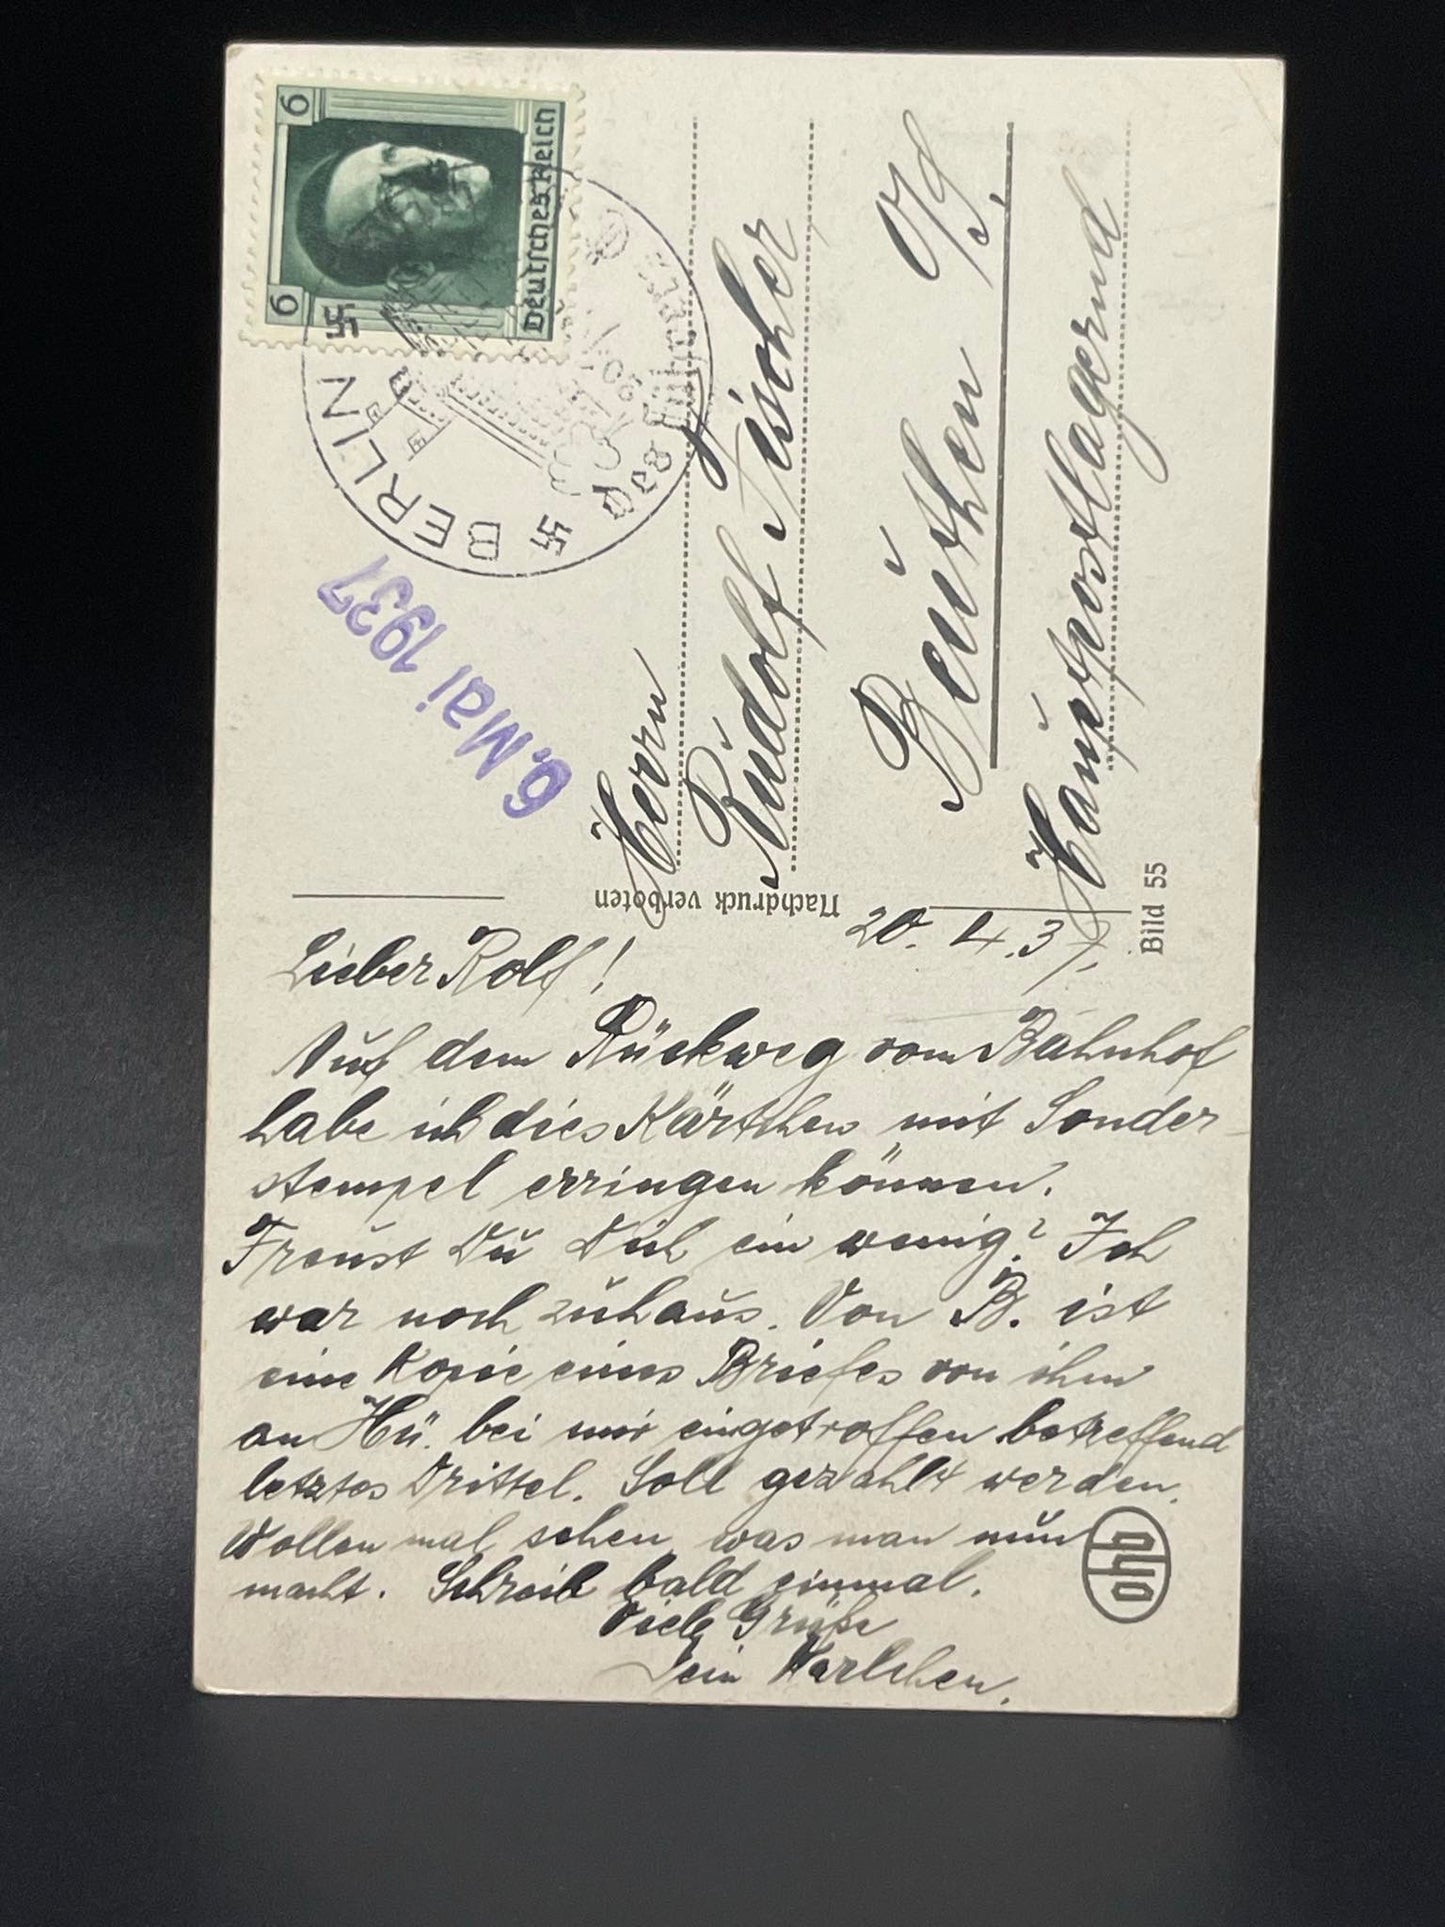 6
6
Deutsches Reich
BERLIN
6. Mai 1937
Herrn
Rudolf Tischler
Beuthen O/S.
Hauptpostlagernd
Nachdruck verboten
Bild 55
20.4.37.
Lieber Rolf!
Auf dem Rückweg vom Bahnhof
habe ich dies Kärtchen mit Sonder-
stempel erringen können.
Freust Du Dich ein wenig? Ich
war noch zuhaus. Von B. ist
eine Kopie eines Briefes von ihm
an Hü. bei mir eingetroffen betreffend
letztes Drittel. Soll gezahlt werden.
Wollen mal sehen was man nun
macht. Schreib bald einmal.
Viele Grüße
Dein Karlchen.
oho